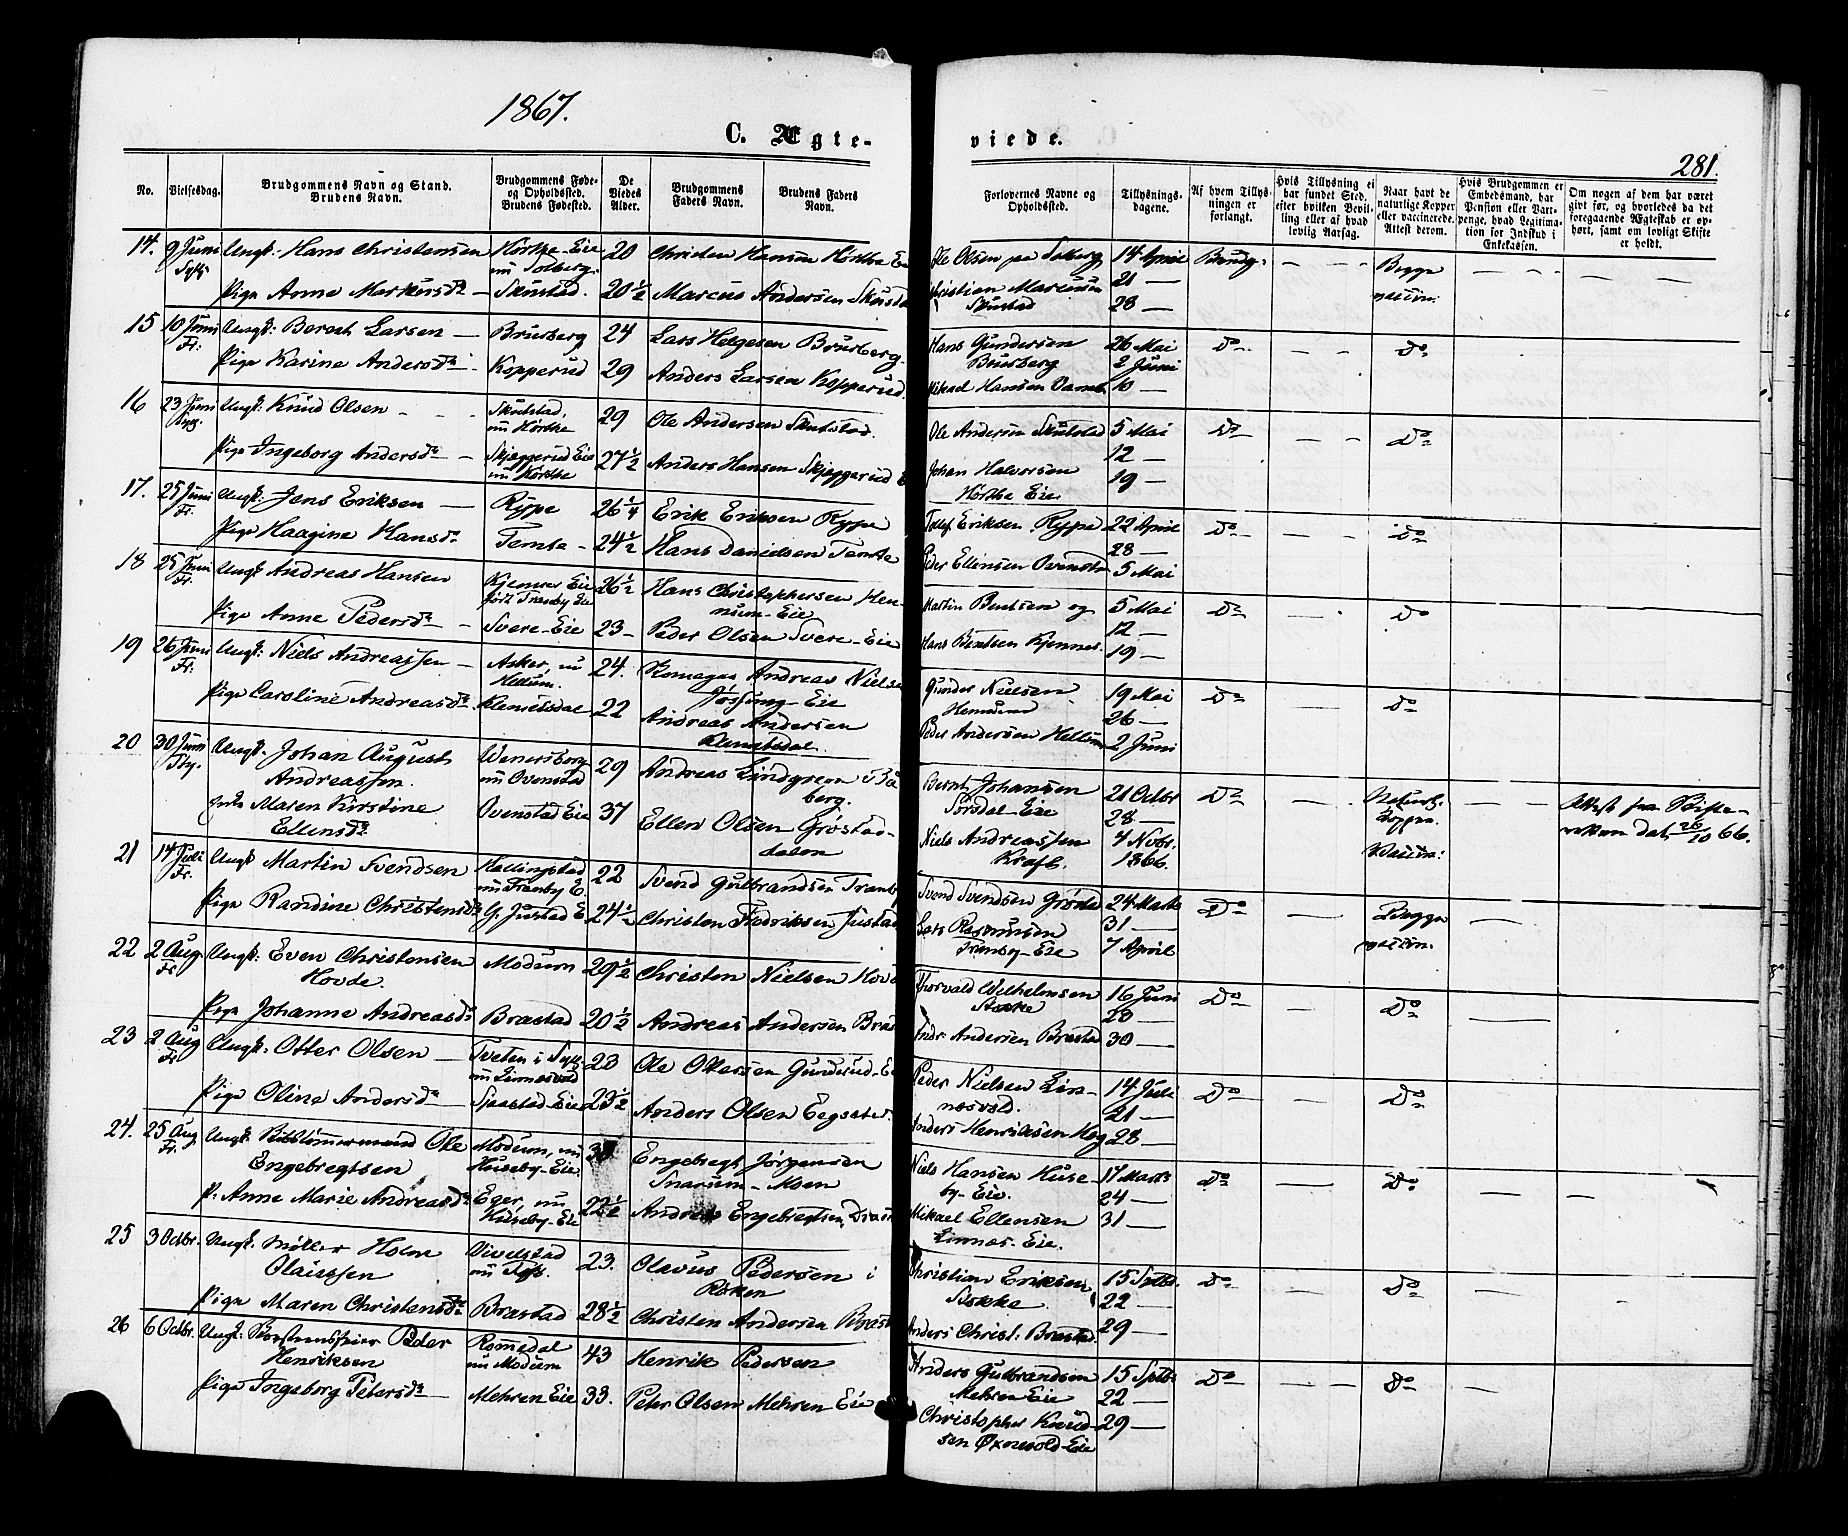 1867.
C. Ægte-
viede.
281.
No.
Vielsesdag.
Brudgommens Navn og Stand.
Brudens Navn.
Brudgommens Føde-
og Opholdssted.
Brudens Fødested.
De
Viedes
Alder.
Brudgommens
Faders Navn.
Brudens Faders
Navn.
Forlovernes Navne og
Opholdssted.
Tillysnings-
dagene.
Af hvem Tillys-
ningen er
forlangt.
Hvis Tillysning ei
har fundet Sted,
efter hvilken Bevil-
ling eller af hvad
lovlig Aarsag.
Naar havt de
naturlige Kopper
eller vaccinerede.
Attest derom.
Hvis Brudgommen er
Embedsmand, har
Pension eller Vart-
penge, hvad Legitima-
tion for Indskud i
Enkekassen.
Om nogen af dem har været
gift før, og hvorledes da det
foregaaende Ægteskab er op-
hørt, samt om lovligt Skifte
er holdt.
14. 9 Juni Ungk: Hans Christensen Hørthe-Eie nu Solberg 20 Christen Hansen Hørthe
Pige Anne Markusd. Skustad 20½ Marcus Andersen
Ole Olsen paa Solberg 14 April Brudg.
21 —
Skustad 28 —
Begge vaccin:
15 10 Juni Fr. Ungk: Berndt Larsen — Brusberg 24 Lars Helgesen Brusberg.
Pige Karine Andersd. Kopperud 29 Anders Larsen Kopperud.
Hans Gundersen Brusberg 26 Mai Do
2 Juni Do
Mikael Hansen 10 —
16 23 Juni Ungk: Knud Olsen Skutstad, nu Hørthe 29 Ole Andersen Skutstad.
Pige Ingeborg Andersd. Skjæggerud Eie nu Hørthe 27½ Anders Hansen Skjæggerud
Ole Andersen Skutstad 5 Mai Do
12 — Do
Johan Halvorsen Hørthe Eie 19 —
17. 25 Juni Fr. Ungk: Jens Eriksen — Rype 26¼ Erik Eriksen Rype
Pige Haagine Hansd. Temte 24½ Hans Danielsen Temte
Eriksen Rype 22 April Do
28 — Do
Peder Ellensen 5 Mai
18 25 Juni Fr. Ungk: Andreas Hansen Tranby Eie 26½ Hans Christophersen Hen-
num-Eie
Pige Anne Pedersd. Svere-Eie 23 — Peder Olsen Svere-Eie
Martin Bentsen og 5 Mai Do
12 — Do
Hans Bentsen Kjennes 19 —
19 26 Juni Fr. Ungk: Niels Andreassen Asker, nu Hellum. 24. Andreas Niels
Eie
Pige Caroline Andreasd. 22 Andreas Andersen
Gunder Nielsen 19 Mai Do
26 — Do
Peder Andersen Hellum 2 Juni
20 30 Juni Ungk. Johan August Andreassen. Wenersborg nu Ovenstad 29 Andreas Lindgreen
berg.
Maren Kirstine Ellensd. Ovenstad Eie 37 Ellen Olsen Grøstad-
dalen
Bernt Johansen Eie 21 Octbr Do
28 —
Niels Andreassen Kraft. 4 Novbr. 1866.
Naturl. Kopper. Vaccin:
Attest fra Skifte-
retten dat. 26/10 66.
21 14 Juli Fr. Ungk Martin Svendsen Hallingstad nu Tranby E. 22 Svend Gulbrandsen Tranby
Pige Randine Christensd. G. Justad E 24½ Christen Fredriksen Justad
Svend Svendsen 24 Marts Do
Lars Rasmussen 31 —
Tranby-Eie 7 April
Begge vaccin.
22 2 Aug. Fr. Ungk: Even Christensen Hovde. Modum 29½ Christen Nielsen
Pige Johanne Andreasd. Brastad 20½ Andreas Andersen
Thorvald Wilhelmsen Stokke 16 Juni Do
23 — Do
Andr Andersen Brastad 30 —
23 2 Aug Fr. Ungk: Otter Olsen — Tveten i Sylling nu Linnesvold 23 Ole Ottersen Gunderud-
Pige Oline Andersd. Sjaastad-Eie 23½ Anders Olsen
Peder Nielsen Lin-
nesvold. 14 Juli Do
21 — Do
Anders Henriksen Høg 28 —
24. 25 Aug Fr. Ungk: Ole Engebregtsen Modum, nu Huseby-Eie. Engebregt Jørgensen
Snarum-Moen
P: Anne Marie Andreasd. Eger, nu Huseby-Eie 22½ Andreas Engebregtsen
Niels Hansen Huse-
by-Eie. 17 Marts Do
24 — Do
Mikael Ellensen 31 —
Linnes-Eie.
25 3 Octbr. Ungk: Møller Holm Olaissen Vivelstad 23. Olavus Pedersen i
Røken
Pige Maren Christensd. Brastad 28½ Christen Andersen
Christian Eriksen Stokke. 15 Sptbr. Do
22 — Do
Anders Christ: Brastad. 29 —
26 6 Octbr. Ungk: Peder Henriksen Romedal nu Modum 43 Henrik Pedersen
Pige Ingeborg Petersd. Mehren Eie 33. Peter Olsen Mehren Eie
Anders Gulbrandsen 15 Sptbr Do
Mehren Eie 22 — Do
Christopher Knud- 29 —
sen Øxnevold-Eie